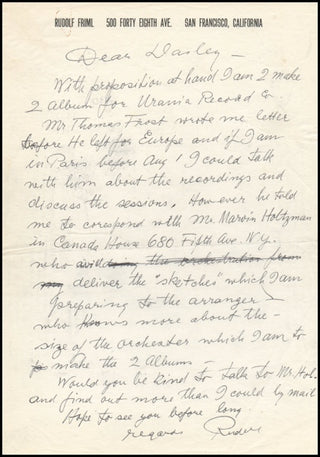 RUDOLF FRIML 500 FORTY EIGHTH AVE. SAN FRANCISCO, CALIFORNIA
Dear Dailey —
With proposition at hand I am 2 make
2 Album for Urania Record Co.
Mr Thomas Frost wrote me letter
before He left for Europe and if I am
in Paris before Aug 1 I could talk
with him about the recordings and
discuss the sessions. However he told
me to corespond with Mr. Marvin Holtzman
in Canada House 680 Fifth Ave. N.Y.
who will the orchestration from
deliver the "sketches" which I am
preparing to the arranger —
who knows more about the —
size of the orchester which I am to
make the 2 Albums —
Would you be kind to talk to Mr. Hol.
and find out more than I could by mail
Hope to see you before long
regards Rudolf